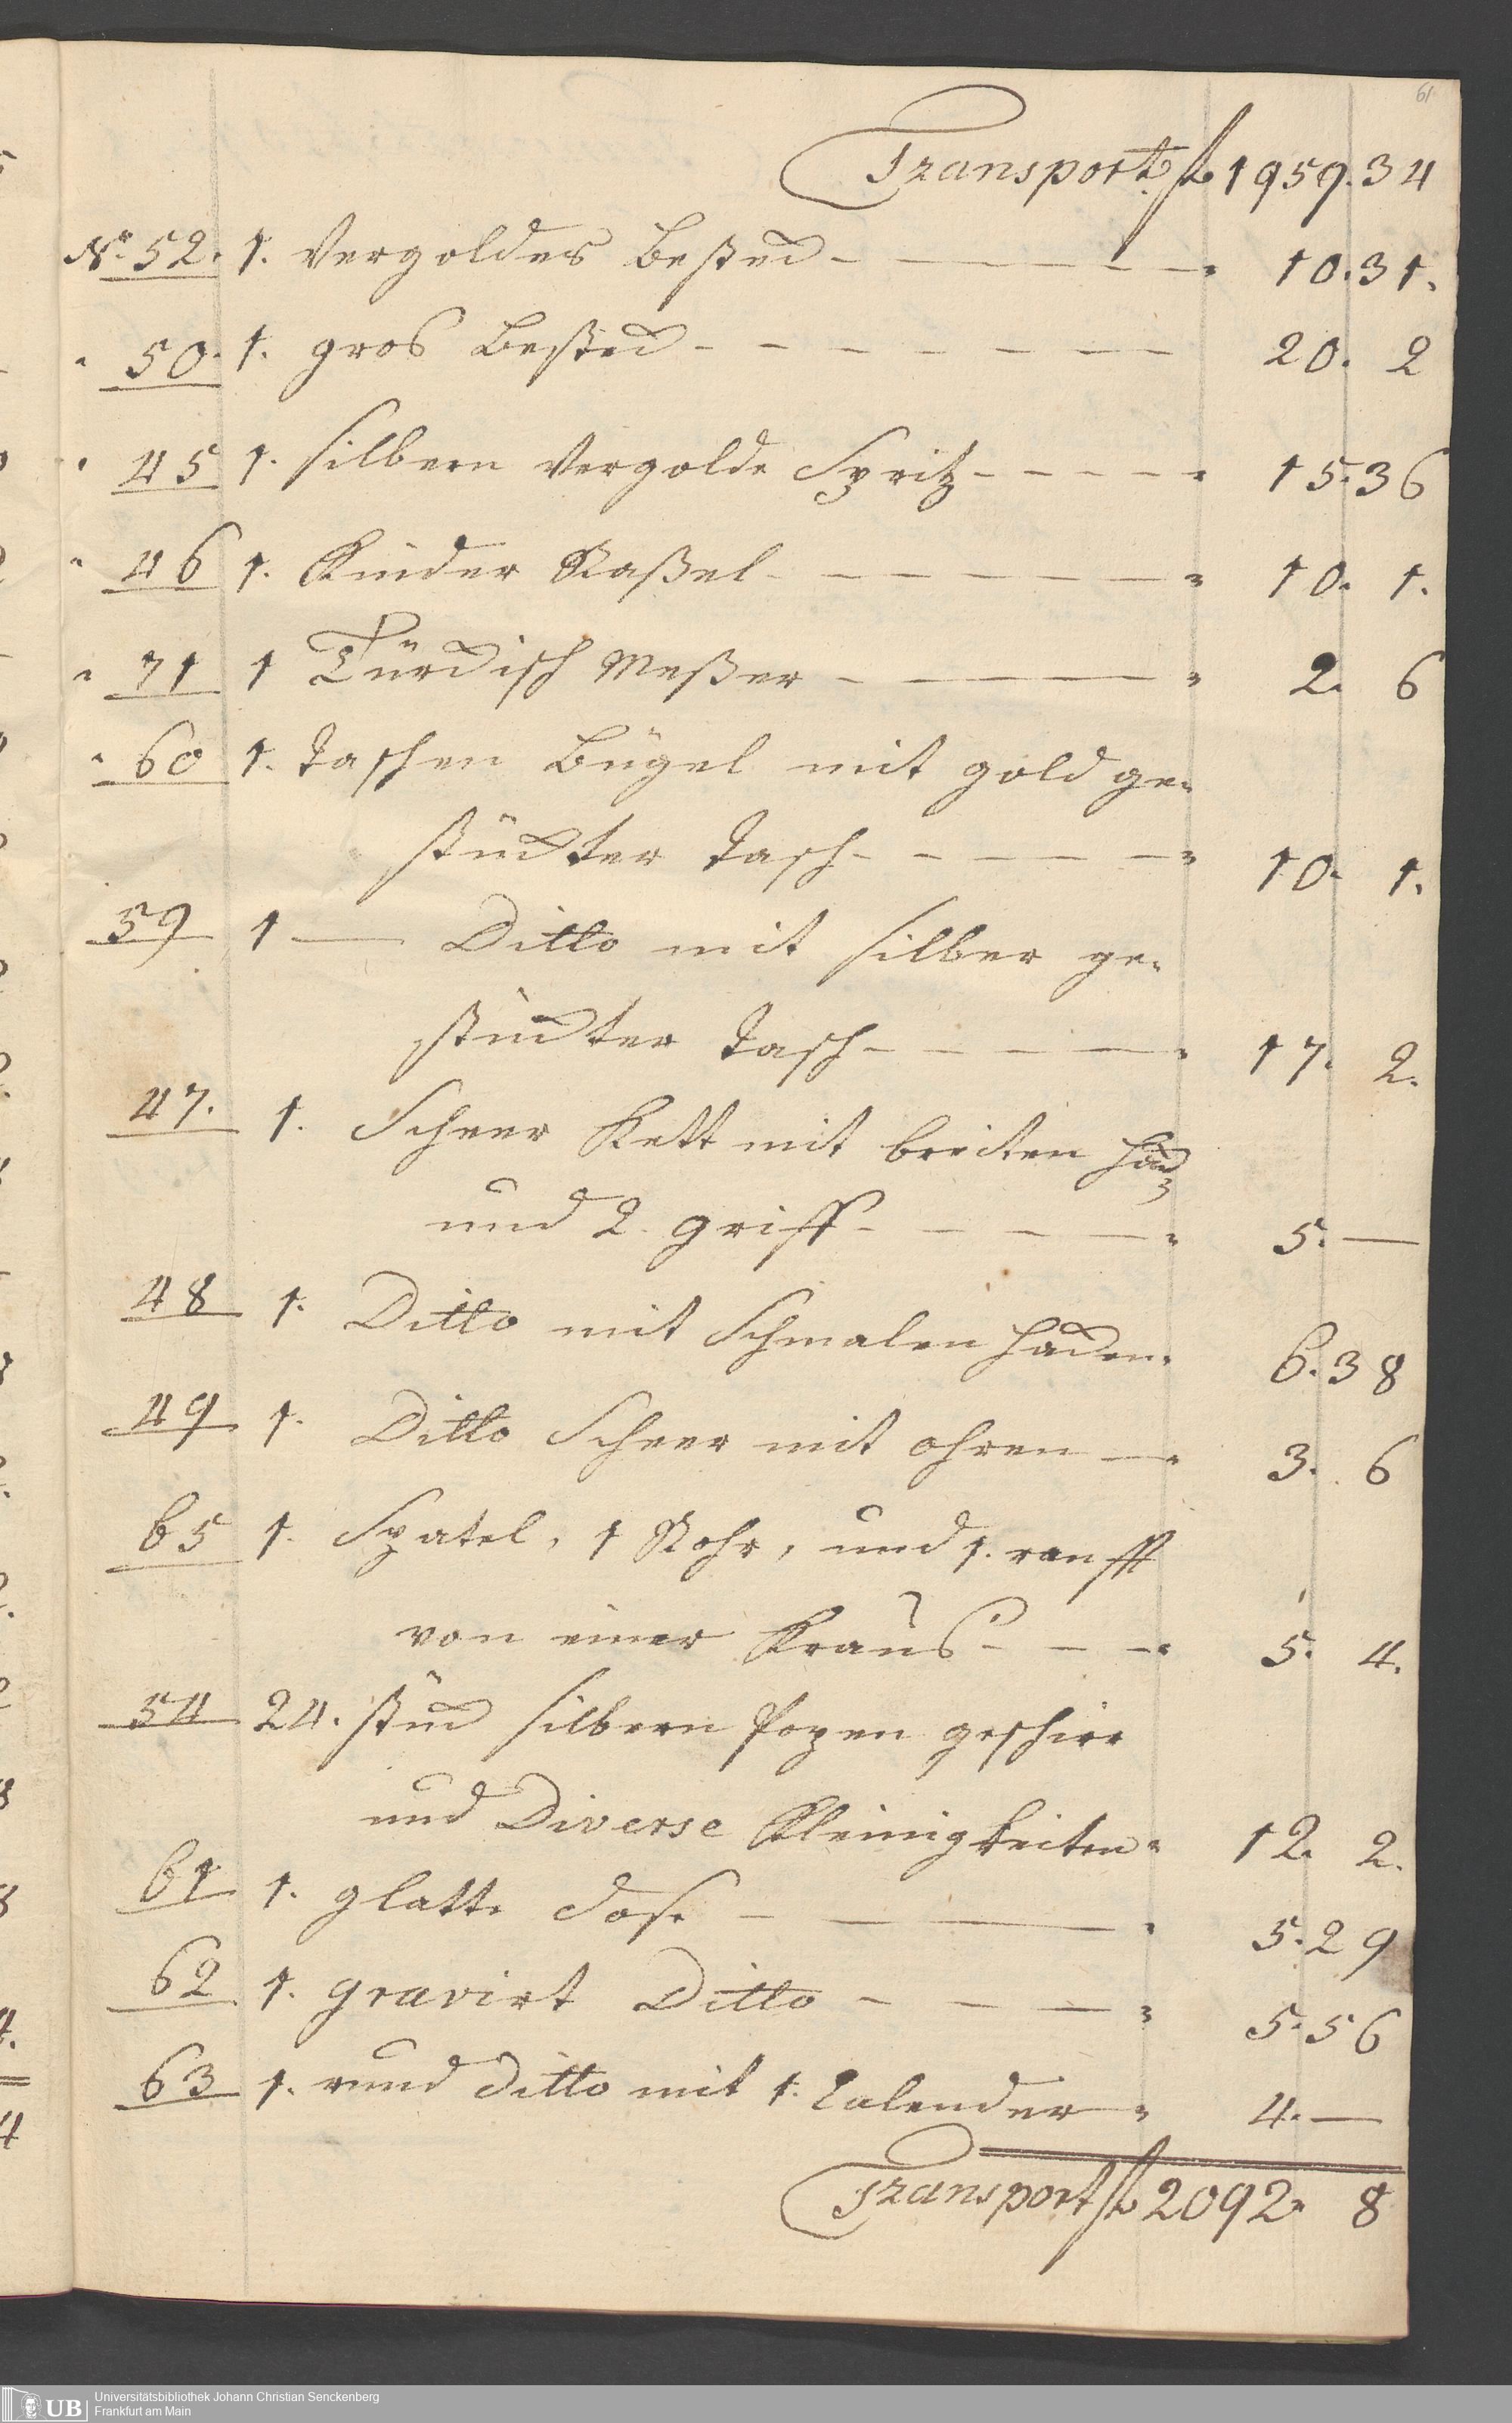 61
Transport f 1959.34
No. 52. 1. Vergoldes Besteck - - - - - 10.31.
" 50. 1. gros Besteck - - - - - - - 20. 2
" 45 1. silbern Vergolde Spritz - - - - - 15.36
" 46 1. Kinder Raßel - - - - - - 10. 1.
" 71 1 Türckisch Meßer - - - - 2. 6
" 60 1. Taschen Bügel mit gold ge-
stückter Tasch - - - - - 10. 1.
59 1 — Ditto mit silber ge-
stückter Tasch - - - - 17. 2.
47. 1. Scheer Kett mit breiten Hack
und 2. griff - - - - 5. —
48 1. Ditto mit Schmalen Hacken 6.38
49 1. Ditto Scheer mit ohren — 3. 6
65 1. Spatel, 1 Rohr, und 1. ranfft
von einer Kraus - - - 5. 4.
54 24. stück silbern Popen geschirr
und Diverse Kleinigkeiten 12. 2.
61 1. glatte Dose - - - 5.29
62 1. gravirt Ditto - - - 5.56
63 1. rund ditto mit 1. Calender 4. —
Transport f 2092. 8
UB Universitätsbibliothek Johann Christian Senckenberg
Frankfurt am Main